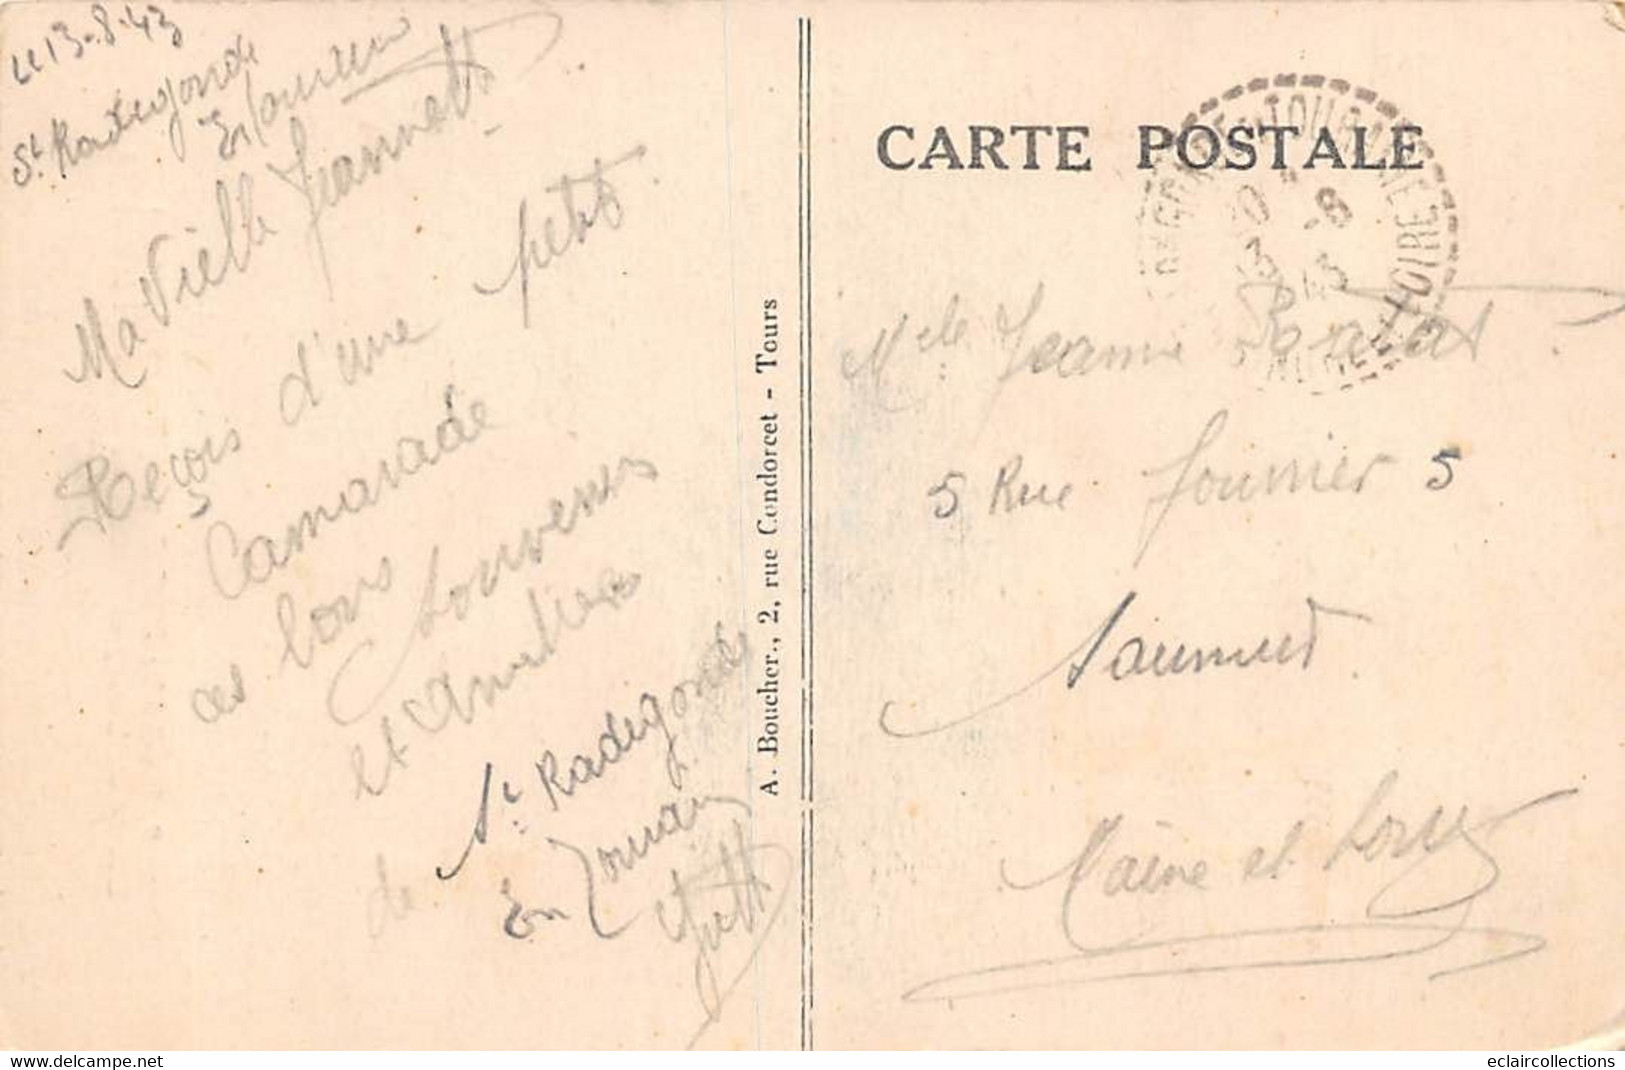 le 13-8-43
St Radegonde
En Touraine
Ma Vielle Jeannette
Reçois d'une petite
Camarade
ces bons Souvenirs
et Amitiés
de St Radegonde
En Touraine
A. Boucher., 2, rue Condorcet - Tours
CARTE POSTALE
10 -8
13 8 43
INDRE-ET-LOIRE
Melle Jeanne
5 Rue Fournier 5
Saumur
Maine et Loire
www.delcampe.net
eclaircollections